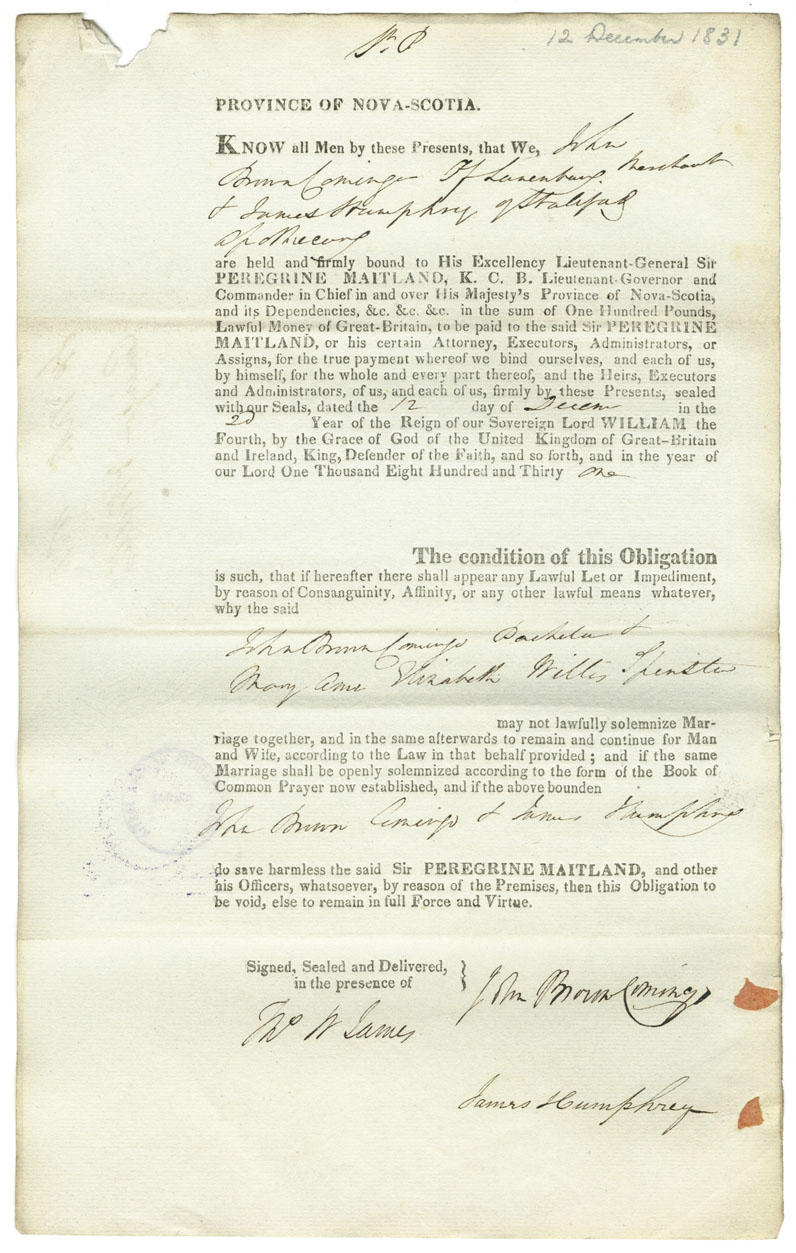 St. P
12 December 1831
PROVINCE OF NOVA-SCOTIA.
KNOW all Men by these Presents, that We, John
Brown Comingo Of Lunenburg Merchant
& James Humphrey of Halifax
Apothecary
are held and firmly bound to His Excellency Lieutenant-General Sir
PEREGRINE MAITLAND, K. C. B. Lieutenant-Governor and
Commander in Chief in and over His Majesty's Province of Nova-Scotia,
and its Dependencies, &c. &c. &c. in the sum of One Hundred Pounds,
Lawful Money of Great-Britain, to be paid to the said Sir PEREGRINE
MAITLAND, or his certain Attorney, Executors, Administrators, or
Assigns, for the true payment whereof we bind ourselves, and each of us,
by himself, for the whole and every part thereof, and the Heirs, Executors
and Administrators, of us, and each of us, firmly by these Presents, sealed
with our Seals, dated the 12 day of Decem in the
2d Year of the Reign of our Sovereign Lord WILLIAM the
Fourth, by the Grace of God of the United Kingdom of Great-Britain
and Ireland, King, Defender of the Faith, and so forth, and in the year of
our Lord One Thousand Eight Hundred and Thirty one
The condition of this Obligation
is such, that if hereafter there shall appear any Lawful Let or Impediment,
by reason of Consanguinity, Affinity, or any other lawful means whatever,
why the said
John Brown Comingo Bachelor &
Mary Ann Elizabeth Willis Spinster
may not lawfully solemnize Mar-
riage together, and in the same afterwards to remain and continue for Man
and Wife, according to the Law in that behalf provided ; and if the same
Marriage shall be openly solemnized according to the form of the Book of
Common Prayer now established, and if the above bounden
John Brown Comingo & James Humphrey
do save harmless the said Sir PEREGRINE MAITLAND, and other
his Officers, whatsoever, by reason of the Premises, then this Obligation to
be void, else to remain in full Force and Virtue.
Signed, Sealed and Delivered,
in the presence of
John Brown Comingo
Thos W James
James Humphrey